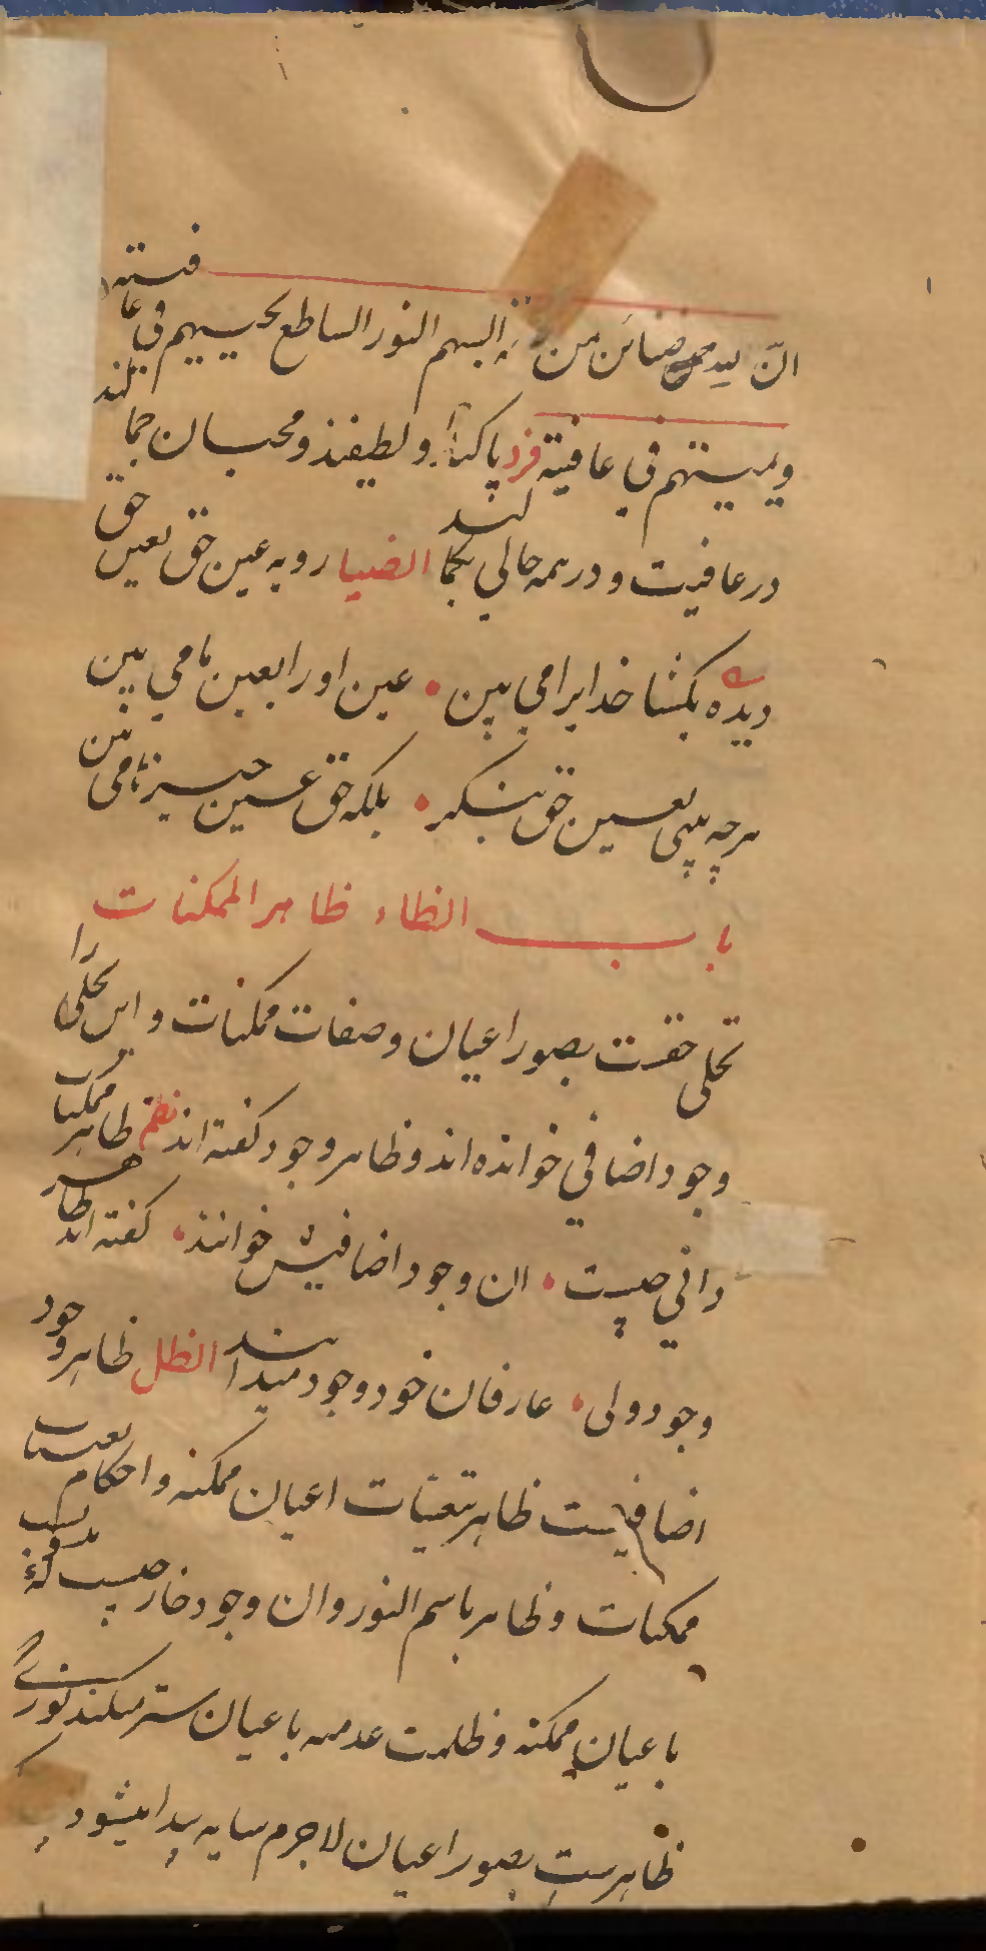 انّ لله ضنائن من خلقه البسهم النور الساطع یحییهم فی عافیته
ویمیتهم فی عافیة فرد پاکند ولطیفند ومحبان جمالند
در عافیت و در همه حالی بکمالند الضیا رویه عین حق بعین حق
دیده بکشا خدایرا می بین عین او را بعین ما می بین
هرچه بینی بعین حق بنکر بلکه حق عین جیزها می بین
باب الظاء ظاهر الممکنات
تجلی حقست بصور اعیان وصفات ممکنات و این تجلی را
وجود اضافی خوانده اند وظاهر وجود کفته اند نظم ظاهر ممکنات
دانی چیست ان وجود اضافیش خوانند کفته اند ظاهر
وجود ولی عارفان خود وجود میدانند الظل ظاهر وجود
اضافیست ظاهر بتعینات اعیان ممکنه واحکام تعینات
ممکنات وظاهر باسم النور وان وجود خارجیست که منسوبست
باعیان ممکنه وظلمت عدمیه باعیان ستر میکند نوری که
ظاهرست بصور اعیان لاجرم سایه پیدا میشود